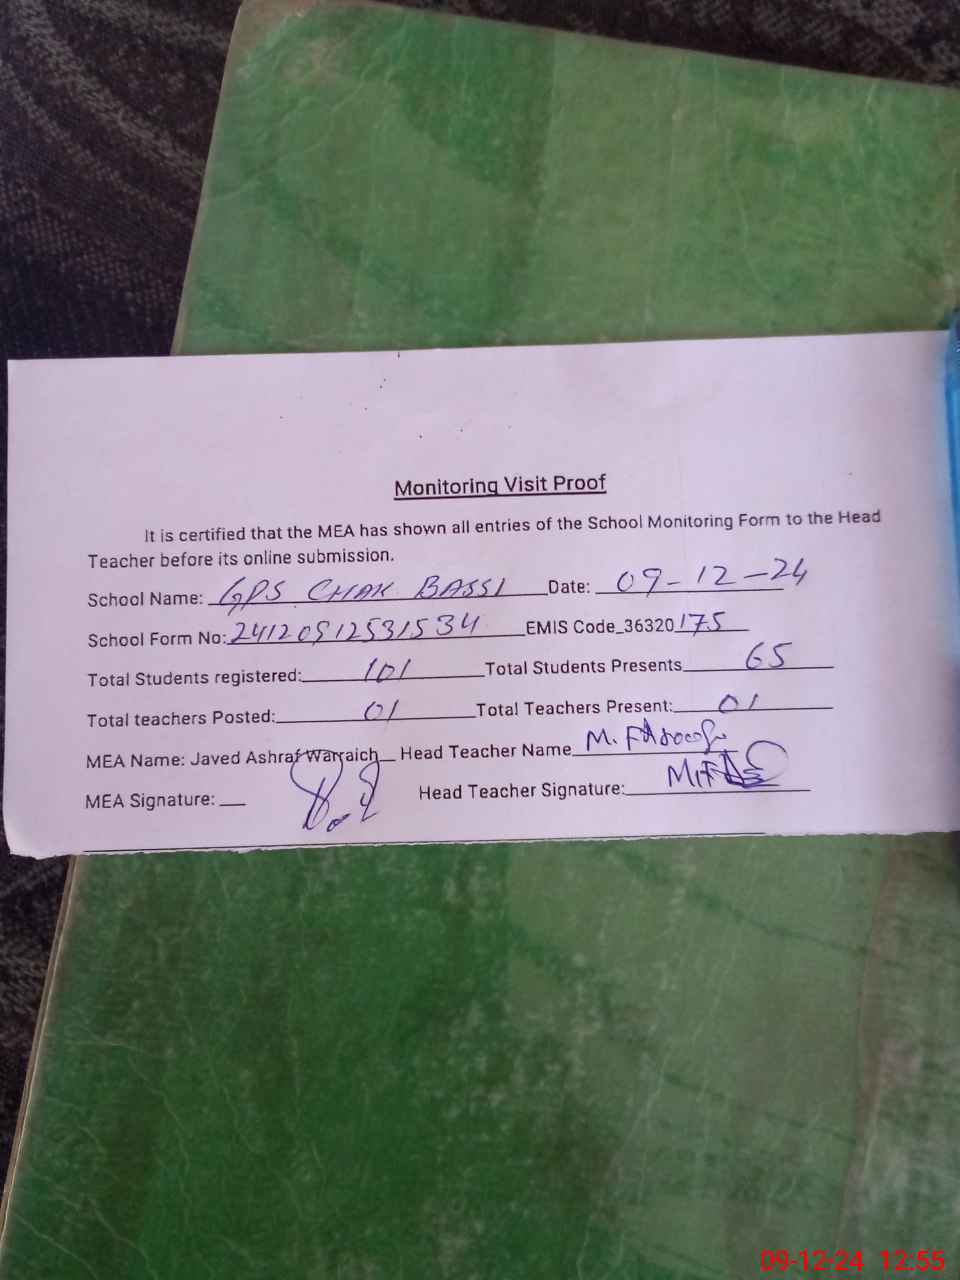 Monitoring Visit Proof
It is certified that the MEA has shown all entries of the School Monitoring Form to the Head
Teacher before its online submission.
School Name: GPS CHAK BASSI Date: 09-12-24
School Form No: 24120912531534 EMIS Code_36320175
Total Students registered: 101 Total Students Presents 65
Total teachers Posted: 01 Total Teachers Present: 01
MEA Name: Javed Ashraf Warraich Head Teacher Name M.
MEA Signature: Head Teacher Signature:
09-12-24 12:55